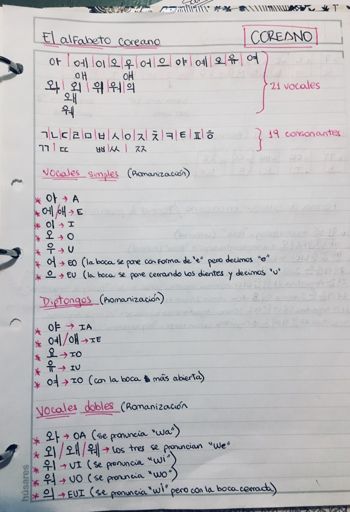 El alfabeto coreano
COREANO
아 | 에 | 이 | 오 | 우 | 어 | 으 | 야 | 예 | 요 | 유 | 여
애 얘
와 | 외 | 위 | 워 | 의
왜
웨
21 vocales
ㄱ | ㄴ | ㄷ | ㄹ | ㅁ | ㅂ | ㅅ | ㅇ | ㅈ | ㅊ | ㅋ | ㅌ | ㅍ | ㅎ
ㄲ | ㄸ ㅃ | ㅆ | ㅉ
19 consonantes
Vocales simples (Romanización)
* 아 → A
* 에/애 → E
* 이 → I
* 오 → O
* 우 → U
* 어 → EO (la boca se pone con forma de "e" pero decimos "o"
* 으 → EU (la boca se pone cerrando los dientes y decimos "u"
Diptongos (Romanización)
* 야 → IA
* 예/얘 → IE
* 요 → IO
* 유 → IU
* 여 → IO (con la boca más abierta)
Vocales dobles (Romanización
* 와 → OA (se pronuncia "wa")
* 외/왜/웨 → los tres se pronuncian "we"
* 위 → UI (se pronuncia "wi")
* 워 → UO (se pronuncia "wo")
* 의 → EUI (se pronuncia "wi" pero con la boca cerrada)
húsares